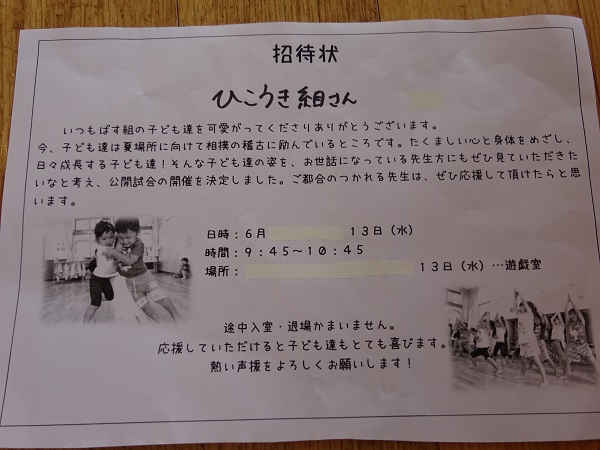 招待状
ひこうき組さん
いつもばす組の子ども達を可愛がってくださりありがとうございます。
今、子ども達は夏場所に向けて相撲の稽古に励んでいるところです。たくましい心と身体をめざし、
日々成長する子ども達！そんな子ども達の姿を、お世話になっている先生方にもぜひ見ていただきた
いなと考え、公開試合の開催を決定しました。ご都合のつかれる先生は、ぜひ応援して頂けたらと思
います。
日時：６月 １３日（水）
時間：９：４５～１０：４５
場所： １３日（水）…遊戯室
途中入室・退場かまいません。
応援していただけると子ども達もとても喜びます。
熱い声援をよろしくお願いします！